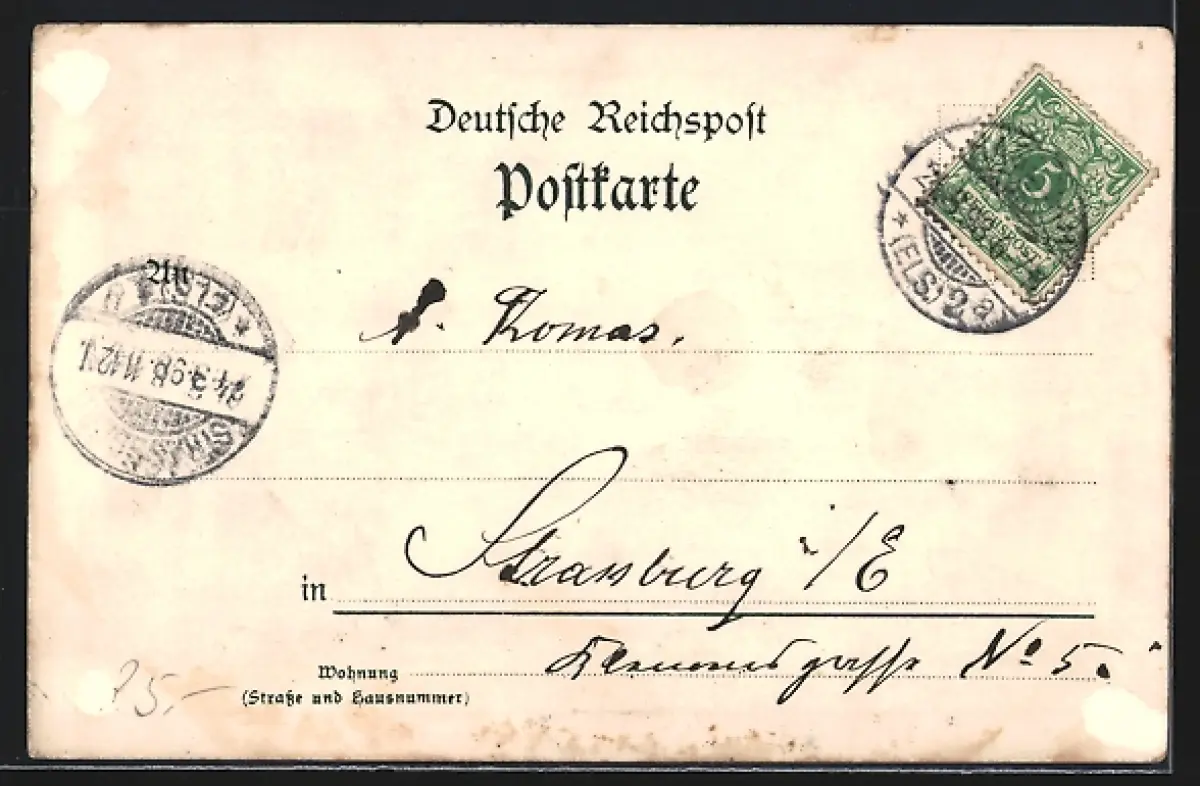 Deutsche Reichspost
Postkarte
5
REICHSPOST
* (ELS) 2 a
An
Komas.
* (ELS)
STRASSB
in Strassburg i/E
Wohnung
(Straße und Hausnummer)
gasse No 5.
75.-